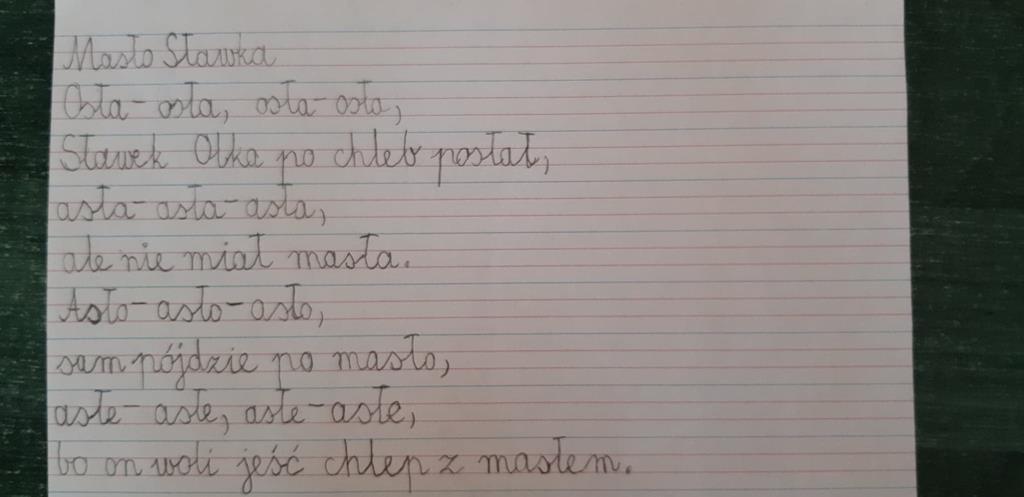 Masło Sławka
Osła-osła, osła-osła,
Sławek Olka po chleb posłał,
asła-asła-asła,
ale nie miał masła.
Asło-asło-asło,
sam pójdzie po masło,
asłe-asłe, asłe-asłe,
bo on woli jeść chlep z masłem.